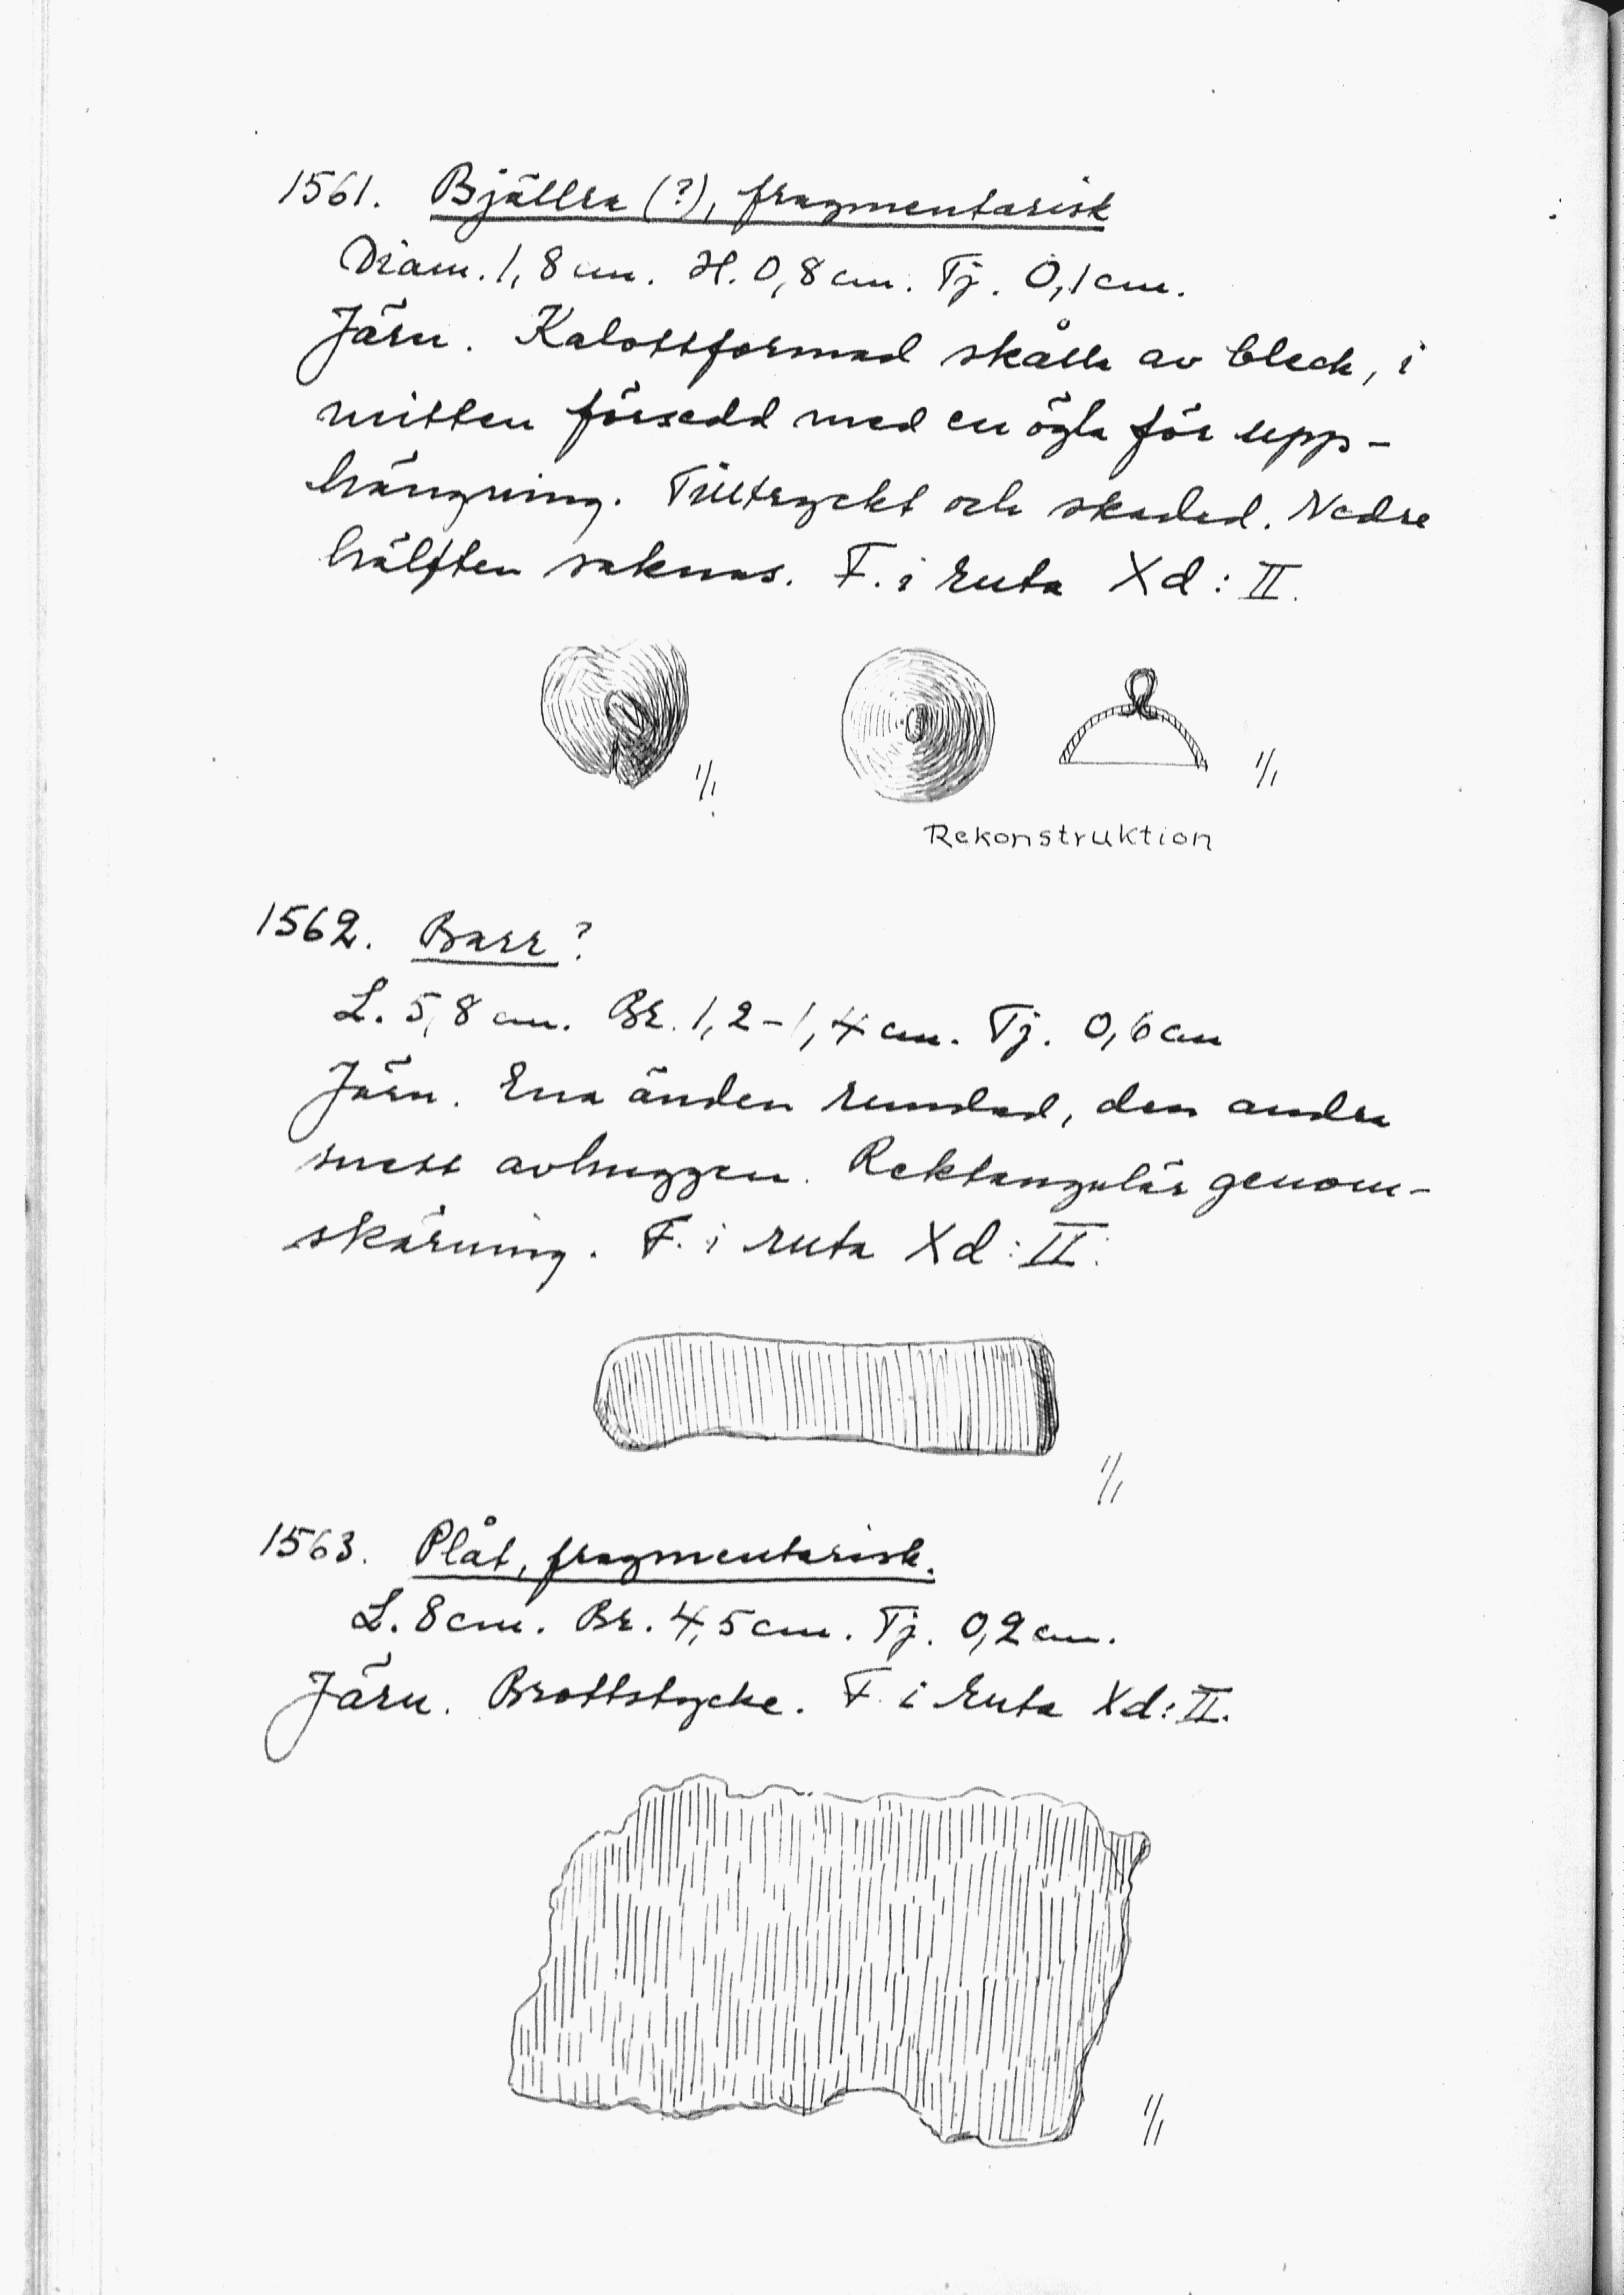 1561. Bjällra (?), fragmentarisk
Diam. 1,8 cm. H. 0,8 cm. Tj. 0,1 cm.
Järn. Kalottformad skålla av bleck, i
mitten försedd med en ögla för upp-
hängning. Tilltryckt och skadad. Nedre
hälften saknas. F. i ruta Xd: II.
1/1
1/1
Rekonstruktion
1562. Barr?
L. 5,8 cm. Br. 1,2-1,4 cm. Tj. 0,6 cm
Järn. Ena änden rundad, den andra
snett avhuggen. Rektangulär genom-
skärning. F. i ruta Xd: II.
1/1
1563. Plåt, fragmentarisk.
L. 8 cm. Br. 4,5 cm. Tj. 0,2 cm.
Järn. Brottstycke. F. i ruta Xd: II.
1/1